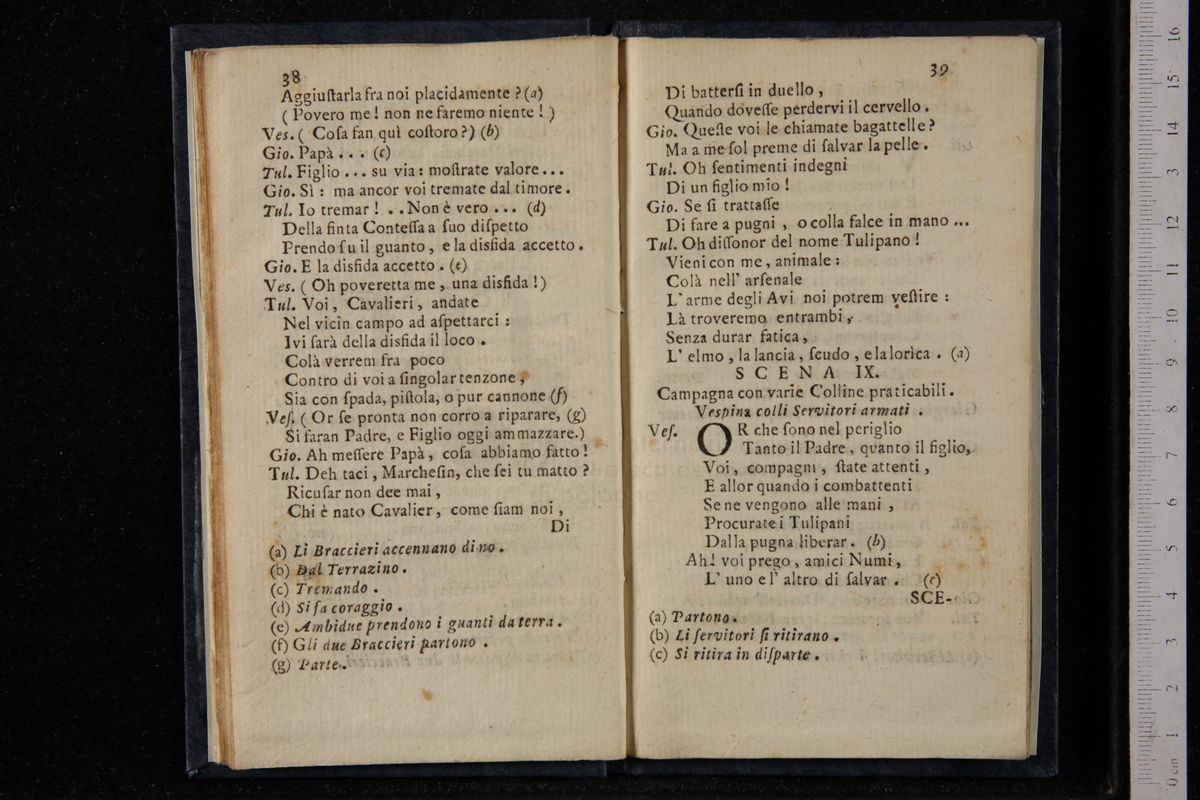 38
Aggiuſtarla fra noi placidamente ? (a)
( Povero me ! non ne faremo niente ! )
Ves. ( Coſa fan quì coſtoro ?) (b)
Gio. Papà . . . (c)
Tul. Figlio . . . su via : moſtrate valore . . .
Gio. Sì : ma ancor voi tremate dal timore .
Tul. Io tremar ! . . Non è vero . . . (d)
Della finta Conteſſa a ſuo diſpetto
Prendo ſu il guanto , e la disfida accetto .
Gio. E la disfida accetto . (e)
Ves. ( Oh poveretta me , una disfida ! )
Tul. Voi , Cavalieri , andate
Nel vicin campo ad aſpettarci :
Ivi ſarà della disfida il loco .
Colà verrem fra poco
Contro di voi a ſingolar tenzone ,
Sia con ſpada, piſtola, o pur cannone (f)
Veſ. ( Or ſe pronta non corro a riparare, (g)
Si faran Padre, e Figlio oggi ammazzare.)
Gio. Ah meſſere Papà , coſa abbiamo fatto !
Tul. Deh taci , Marcheſin, che ſei tu matto ?
Ricuſar non dee mai ,
Chi è nato Cavalier , come ſiam noi ,
Di
(a) Li Braccieri accennano di no .
(b) Dal Terrazino .
(c) Tremando .
(d) Si fa coraggio .
(e) Ambidue prendono i guanti da terra .
(f) Gli due Braccieri partono .
(g) Parte .
39
Di batterſi in duello ,
Quando doveſſe perdervi il cervello .
Gio. Queſte voi le chiamate bagattelle ?
Ma a me ſol preme di ſalvar la pelle .
Tul. Oh ſentimenti indegni
Di un figlio mio !
Gio. Se ſi trattaſſe
Di fare a pugni , o colla falce in mano ...
Tul. Oh diſſonor del nome Tulipano !
Vieni con me , animale :
Colà nell' arſenale
L' arme degli Avi noi potrem veſtire :
Là troveremo entrambi ,
Senza durar fatica ,
L' elmo , la lancia , ſcudo , e la lorica . (a)
SCENA IX.
Campagna con varie Colline praticabili .
Vespina colli Servitori armati .
Veſ. OR che ſono nel periglio
Tanto il Padre , quanto il figlio,
Voi , compagni , ſtate attenti ,
E allor quando i combattenti
Se ne vengono alle mani ,
Procurate i Tulipani
Dalla pugna liberar . (b)
Ah ! voi prego , amici Numi ,
L' uno e l' altro di ſalvar . (c)
SCE-
(a) Partono .
(b) Li ſervitori ſi ritirano .
(c) Si ritira in diſparte .
0 cm 1 2 3 4 5 6 7 8 9 10 11 12 13 14 15 16